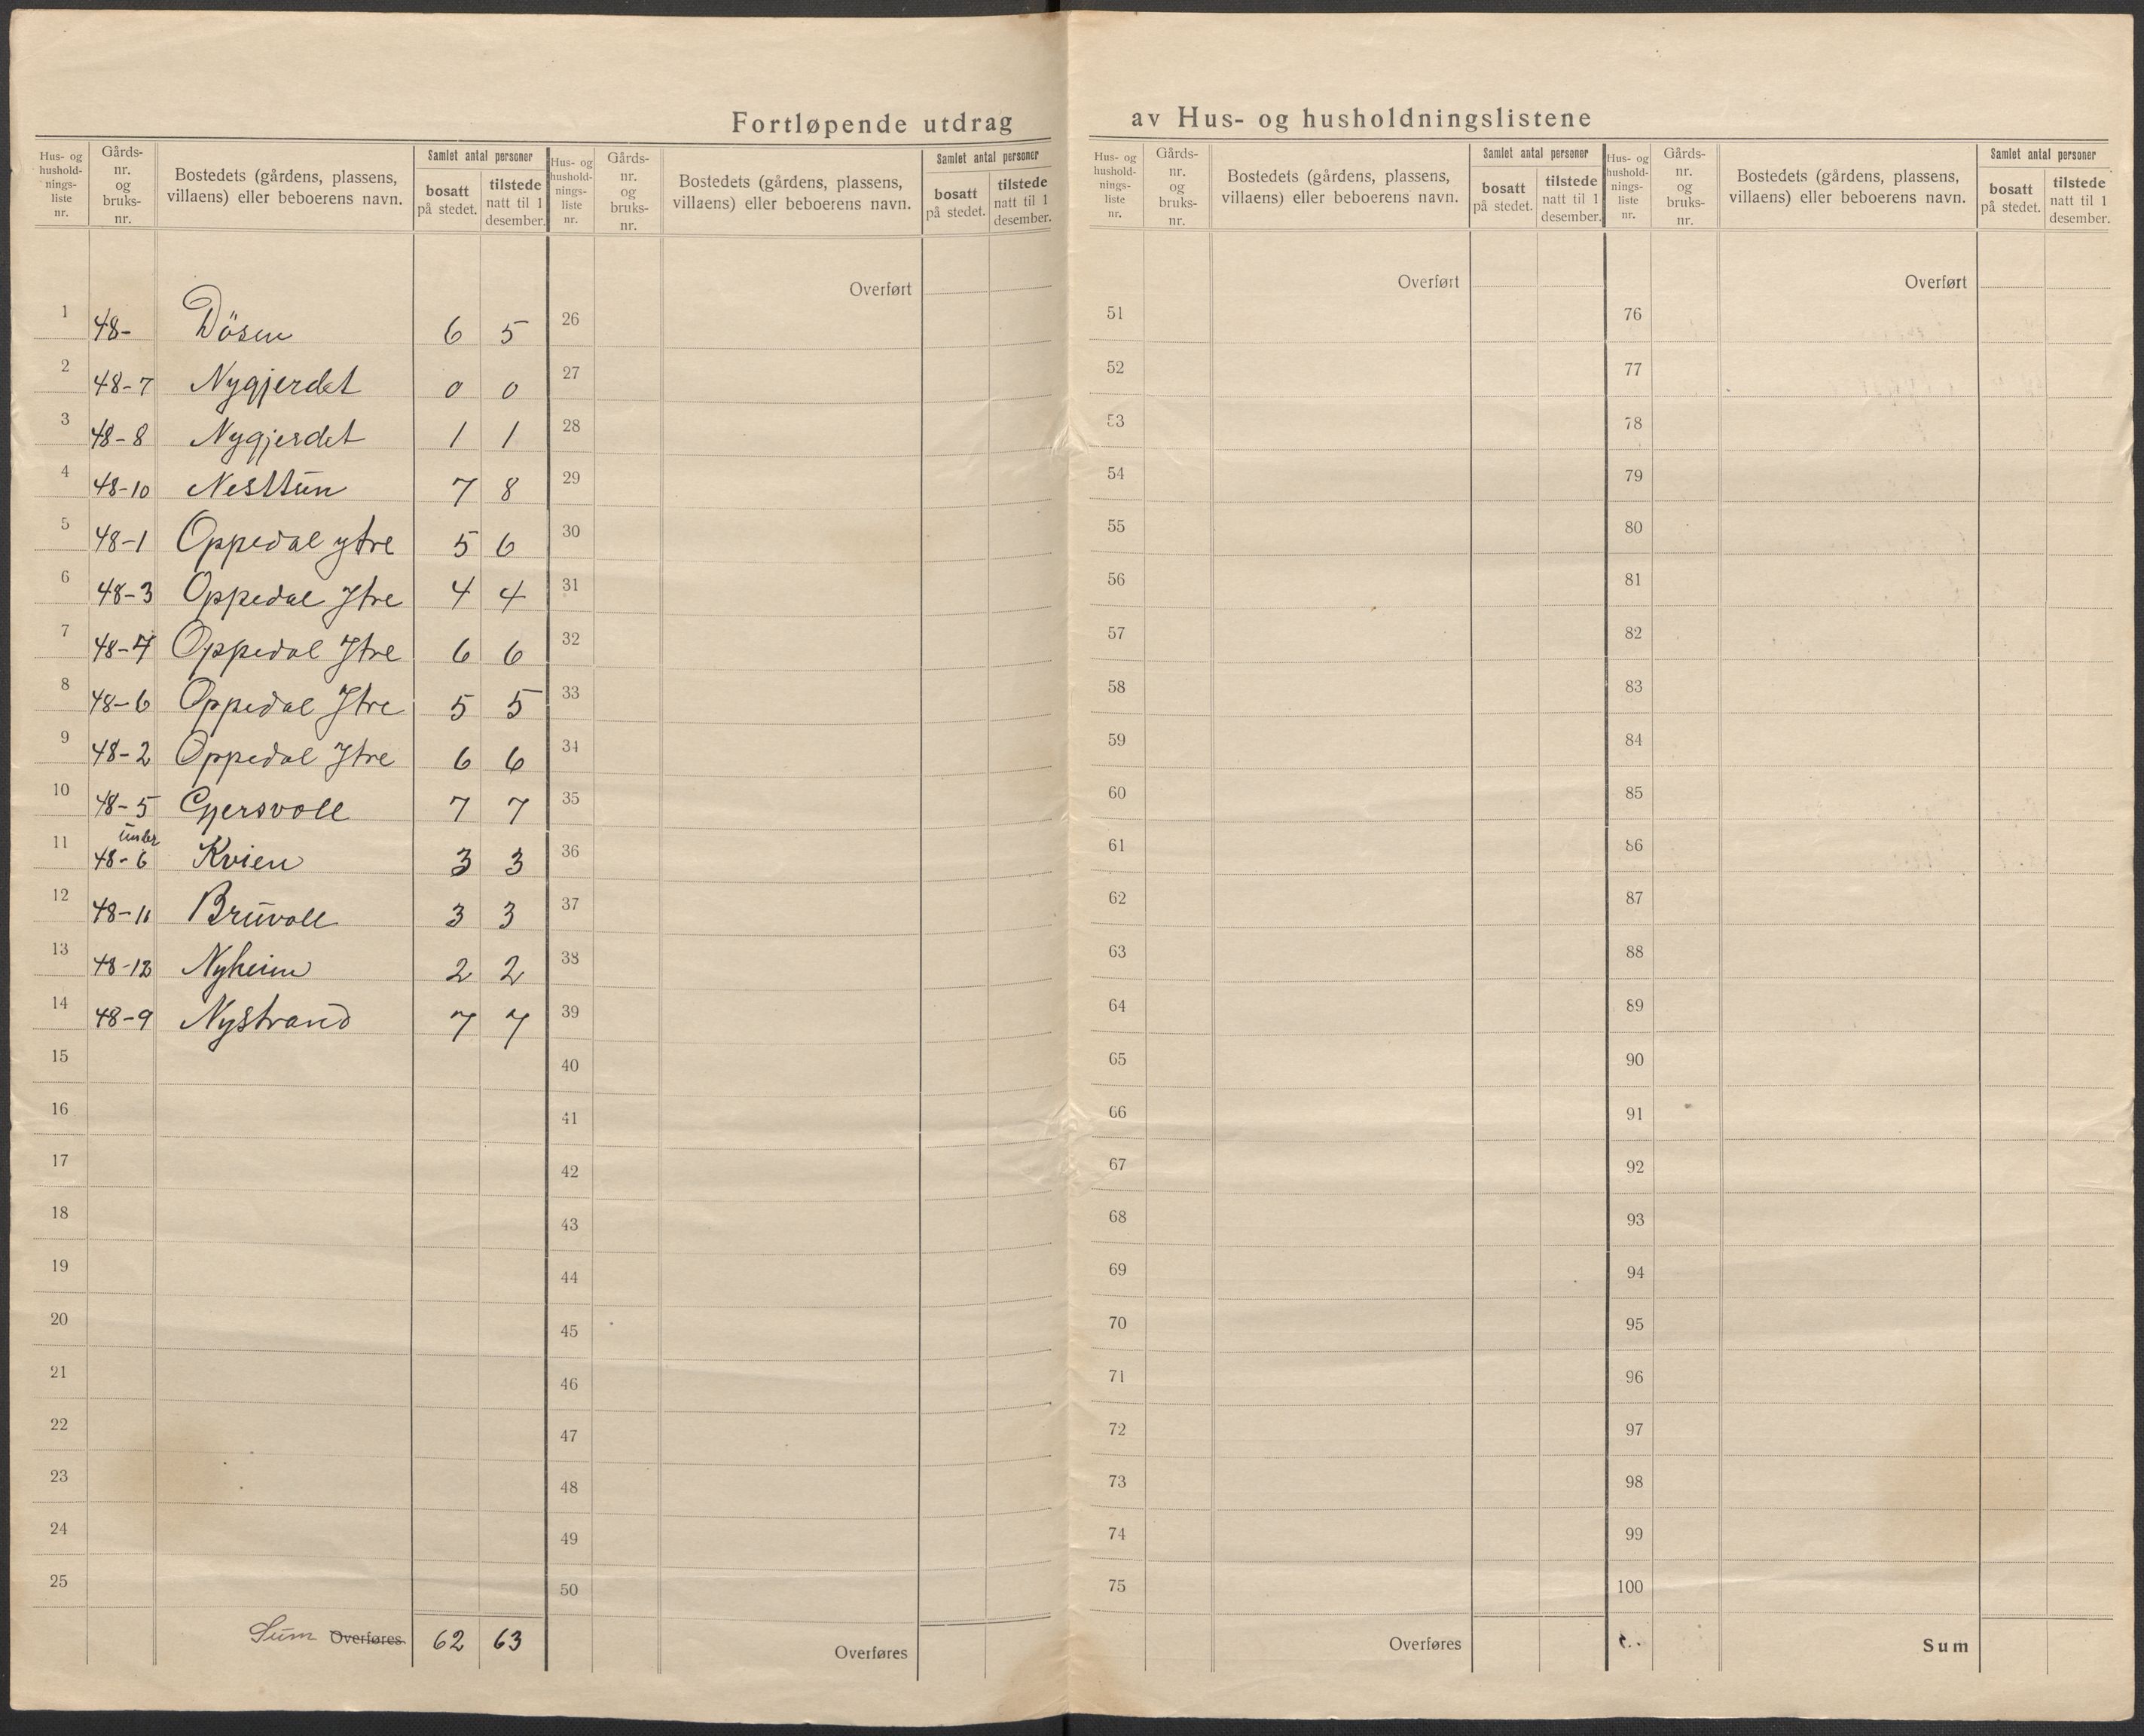 Fortløpende utdrag av Hus- og husholdningslistene
Hus- og hushold- nings- liste nr. | Gårds- nr. og bruks- nr. | Bostedets (gårdens, plassens, villaens) eller beboerens navn. | Samlet antal personer | bosatt på stedet. | tilstede natt til 1 desember.
Hus- og hushold- nings- liste nr. | Gårds- nr. og bruks- nr. | Bostedets (gårdens, plassens, villaens) eller beboerens navn. | Samlet antal personer | bosatt på stedet. | tilstede natt til 1 desember.
Hus- og hushold- nings- liste nr. | Gårds- nr. og bruks- nr. | Bostedets (gårdens, plassens, villaens) eller beboerens navn. | Samlet antal personer | bosatt på stedet. | tilstede natt til 1 desember.
Hus- og hushold- nings- liste nr. | Gårds- nr. og bruks- nr. | Bostedets (gårdens, plassens, villaens) eller beboerens navn. | Samlet antal personer | bosatt på stedet. | tilstede natt til 1 desember.
1 48- Dösen 6 5
2 48-7 Nygjerdet 0 0
3 48-8 Nygjerdet 1 1
4 48-10 Nesttun 7 8
5 48-1 Oppedal ytre 5 6
6 48-3 Oppedal Ytre 4 4
7 48-4 Oppedal Ytre 6 6
8 48-6 Oppedal Ytre 5 5
9 48-2 Oppedal Ytre 6 6
10 48-5 Gjersvoll 7 7
under
11 48-6 Kvien 3 3
12 48-11 Bruvoll 3 3
13 48-12 Nyheim 2 2
14 48-9 Nystrand 7 7
15
16
17
18
19
20
21
22
23
24
25
Sum Overføres 62 63
Overført
26
27
28
29
30
31
32
33
34
35
36
37
38
39
40
41
42
43
44
45
46
47
48
49
50
Overføres
Overført
51
52
53
54
55
56
57
58
59
60
61
62
63
64
65
66
67
68
69
70
71
72
73
74
75
Overføres
Overført
76
77
78
79
80
81
82
83
84
85
86
87
88
89
90
91
92
93
94
95
96
97
98
99
100
Sum